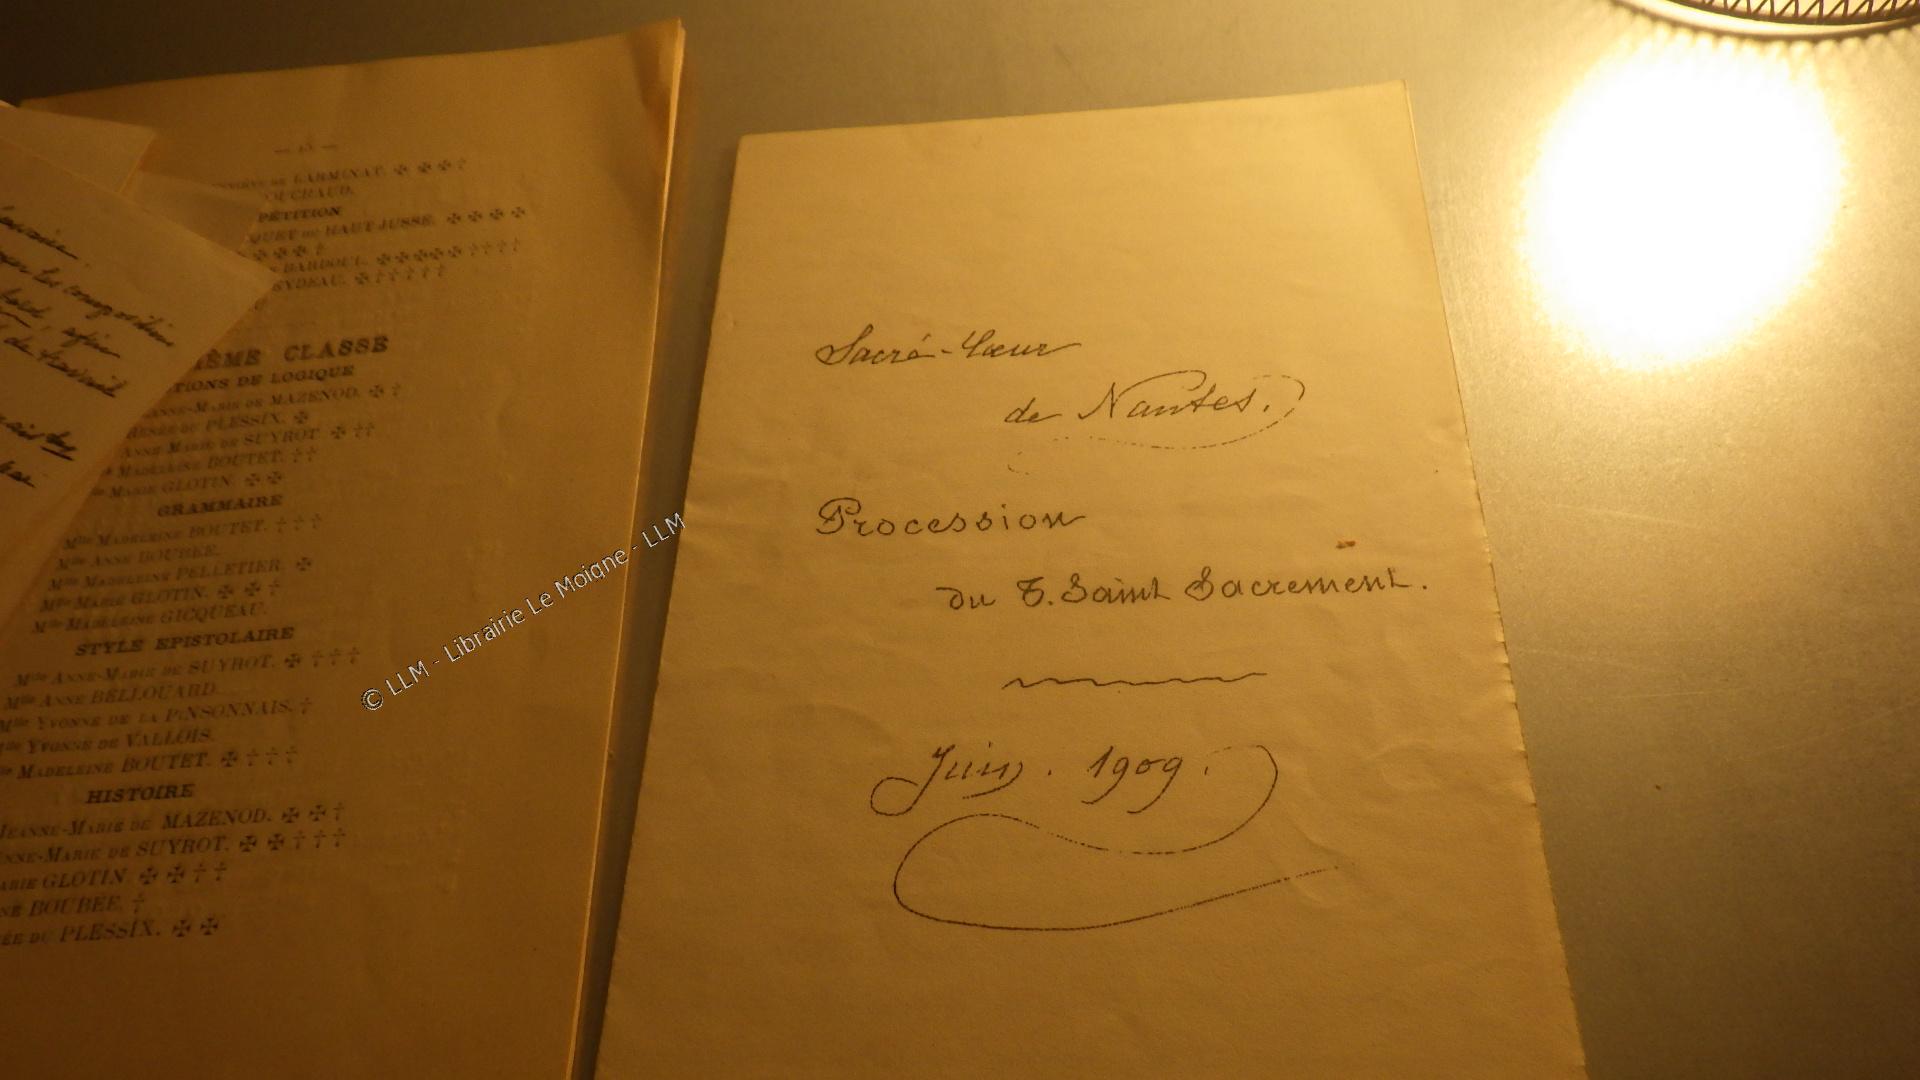 LARMINAT. ✠ ✠ ✠ †
PÉTITION
QUET DU HAUT JUSSÉ. ✠ ✠ ✠ ✠
✠ ✠ ✠ ✠ †
BARDOUL. ✠ ✠ ✠ ✠ ✠ † † † †
YDEAU. ✠ † † † † †
ÈME CLASSE
TIONS DE LOGIQUE
ANNE-MARIE DE MAZENOD. ✠ †
RENÉE DU PLESSIX. ✠
ANNE-MARIE DE SUYROT ✠ † †
MADELEINE BOUTET. † †
lle MARIE GLOTIN. ✠ ✠
GRAMMAIRE
Mlle MADELEINE BOUTET. † † †
Mlle ANNE BOUBÉE.
Mlle MADELEINE PELLETIER. ✠
Mlle MARIE GLOTIN. ✠ ✠ †
Mlle MADELEINE GICQUEAU.
STYLE EPISTOLAIRE
Mlle ANNE-MARIE DE SUYROT. ✠ † † †
Mlle ANNE BELLOUARD.
Mlle YVONNE DE LA PINSONNAIS. †
lle YVONNE DE VALLOIS.
lle MADELEINE BOUTET. ✠ † † †
HISTOIRE
JEANNE-MARIE DE MAZENOD. ✠ ✠ †
NNE-MARIE DE SUYROT. ✠ ✠ † † †
ARIE GLOTIN. ✠ ✠ † †
NE BOUBÉE. †
ÉE DU PLESSIX. ✠ ✠
les composition
afin
de travail
© LLM - Librairie Le Moigne - LLM
Sacré-Cœur
de Nantes.
Procession
du T. Saint Sacrement.
Juin. 1909.